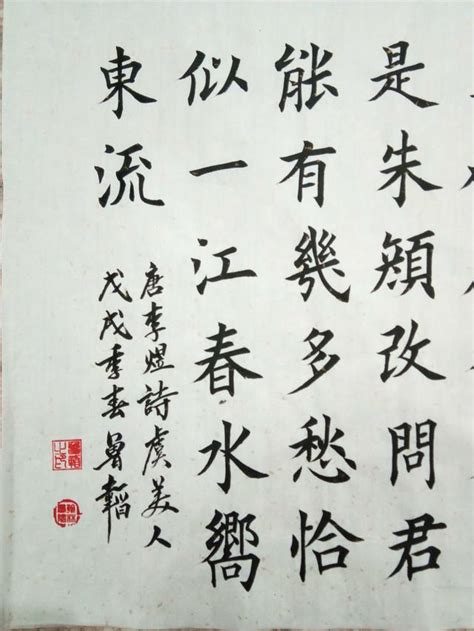 是朱頬改問君
能有幾多愁恰
似一江春水嚮
東流
唐李煜詩虞美人
戊戌季春曾韜